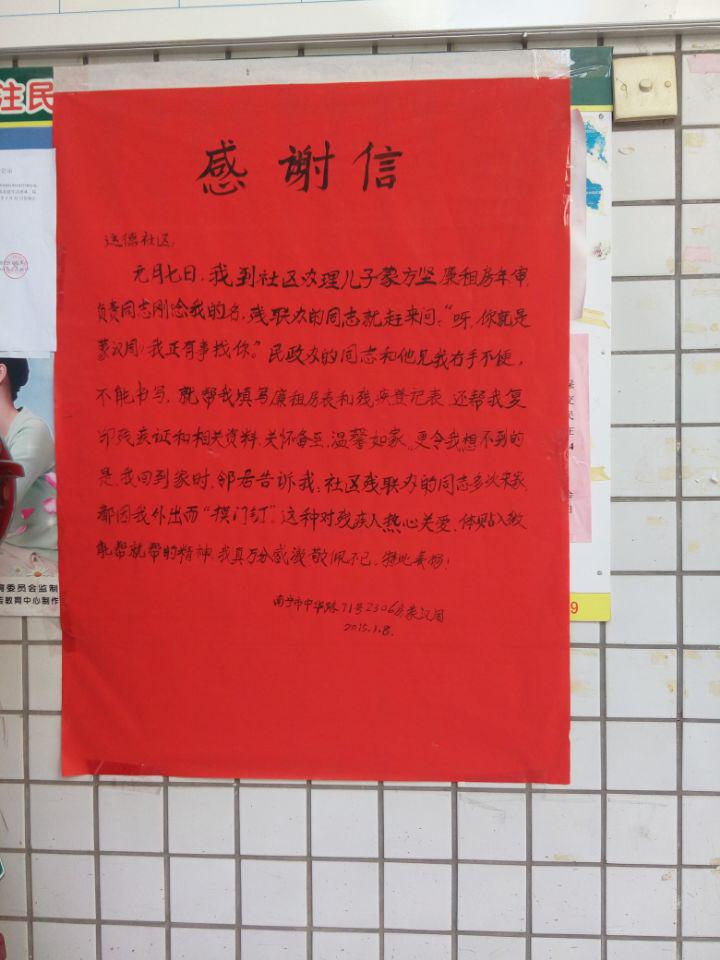 注民
感谢信
远德社区:
元月七日,我到社区办理儿子蒙方坚廉租房年审,
负责同志刚念我的名,残联办的同志就赶来问:“呀,你就是
蒙汉周!我正有事找你。”民政办的同志和他见我右手不便,
不能书写,就帮我填写廉租房表和残疾登记表,还帮我复
印残疾证和相关资料,关怀备至,温馨如家。更令我想不到的
是,我回到家时,邻居告诉我:社区残联办的同志多次来家,
都因我外出而“摸门钉”。这种对残疾人热心关爱、体贴入微
能帮就帮的精神,我真万分感激,敬佩不已,特此表扬!
南宁市中华路71号2306房蒙汉周
2015.1.8.
育委员会监制
教育中心制作
9